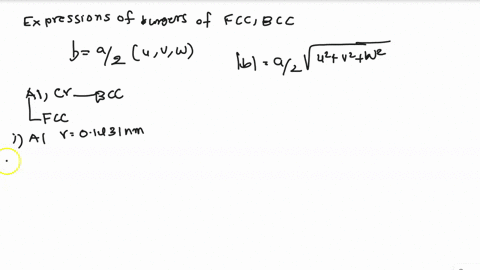 Expressions of burgers of FCC, BCC
b = a/2 (u, v, w)
|b| = a/2 √u²+v²+w²
Al, Cr — BCC
FCC
i) Al r = 0.1431 nm